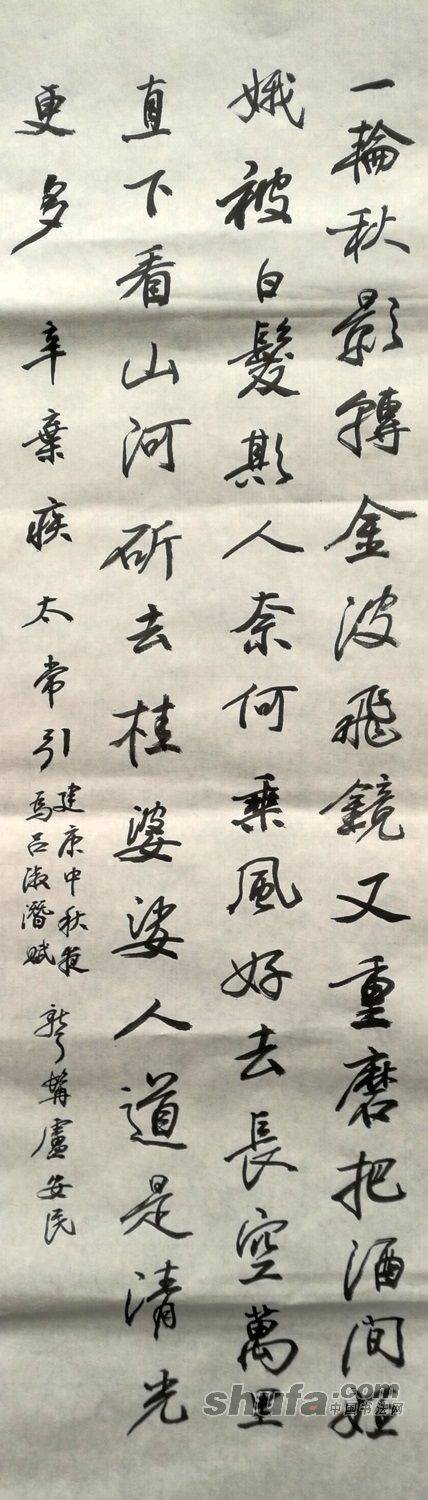 一輪秋影轉金波飛鏡又重磨把酒问姮
娥被白髮欺人奈何乘風好去長空萬里
直下看山河斫去桂婆娑人道是清光
更多 辛棄疾太常引
建康中秋夜
為吕淑潛賦
盧安民
shufa.com
中国书法网